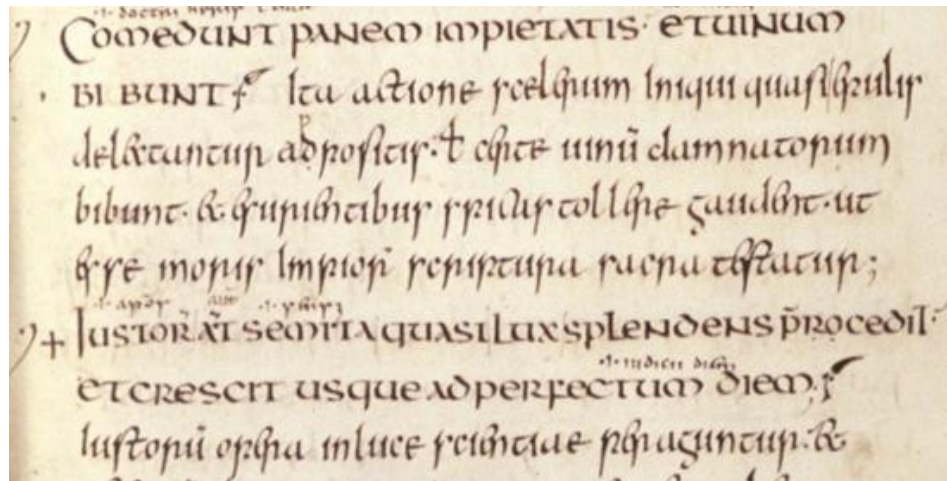 Comedunt panem impietatis· et uinum
bibunt Ita actione scelerum iniqui quasi epulis
delectantur adpositis· ł certe uinū damnatorum
bibunt· & esurientibus spicas tollere gaudent· ut
esse moris impior̄ scriptura sacra testatur;
+ Iustor̄ aūt semita quasi lux splendens p̄rocedit·
·i· iudicii diem
et crescit usque ad perfectum diem;
Iustorū opera in luce scientiae peraguntur· &